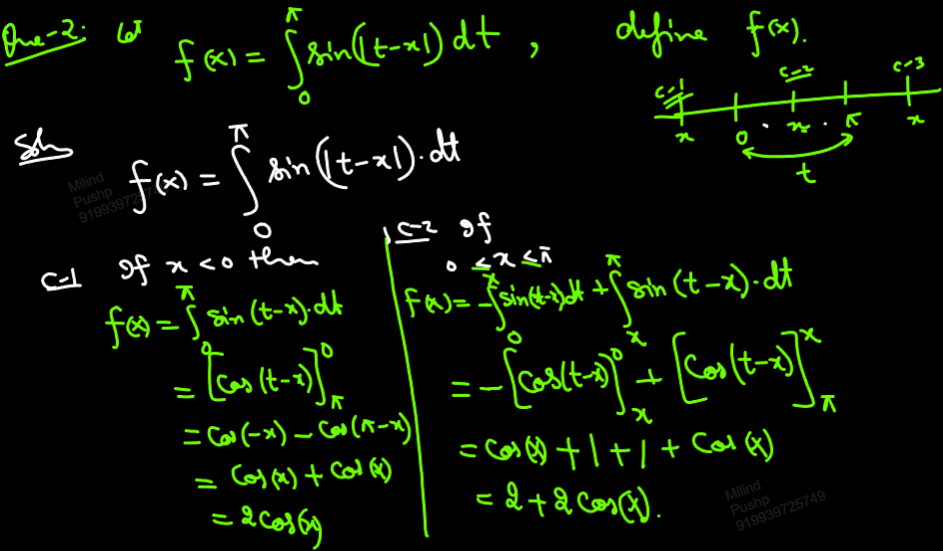 Que-2: let f(x) = ∫₀^π sin(|t-x|) dt , define f(x).
c-1 c-2 c-3
x 0 x π x
t
Soln f(x) = ∫₀^π sin(|t-x|)·dt
Milind
Pushp
c-1 If x<0 then
f(x) = ∫₀^π sin(t-x)·dt
= [cos(t-x)]_π^0
= cos(-x) - cos(π-x)
= cos(x) + cos(x)
= 2cos(x)
c-2 If
0 ≤ x ≤ π
f(x) = -∫₀^x sin(t-x)dt + ∫ₓ^π sin(t-x)·dt
= -[cos(t-x)]_x^0 + [cos(t-x)]_π^x
= cos(x) + 1 + 1 + cos(x)
= 2 + 2cos(x).
Milind
Pushp
919939725749